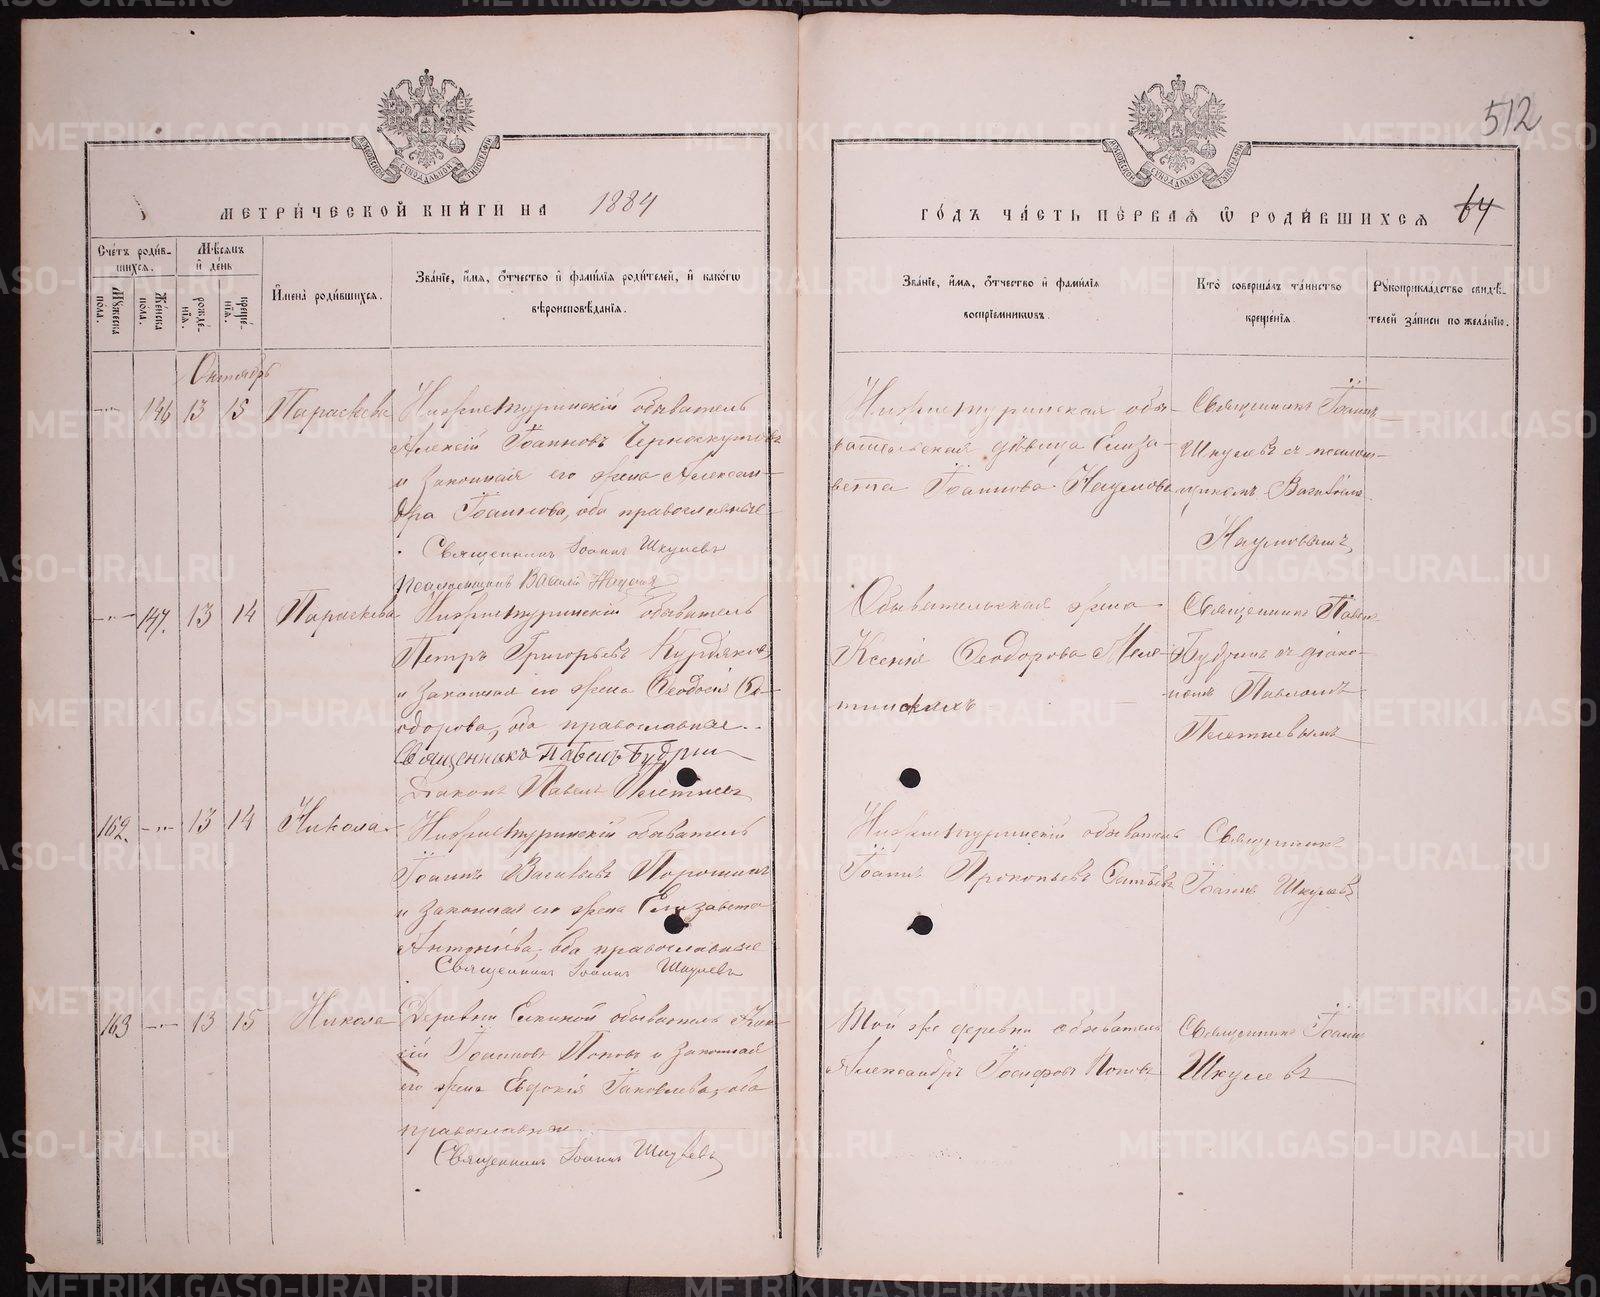 512
МЕТРИЧЕСКОЙ КНИГИ НА 1884
ГОДЪ ЧАСТЬ ПЕРВАЯ Ѿ РОДИВШИХСЯ 64
Счетъ родив-
шихся.
Мужеска пола.
Женска пола.
Мѣсяцъ
и день
рожде-
нія.
креще-
нія.
Имена родившихся.
Званіе, имя, отчество и фамилія родителей, и какогѡ
вѣроисповѣданія.
Званіе, имя, отчество и фамилія
воспріемниковъ.
Кто совершалъ таинство
крещенія.
Рукоприкладство свидѣ-
телей записи по желанію.
Октябрь
146 13 15 Параскева
Нижнетуринскій обыватель
Алексій Іоанновъ Черноскутовъ
и законная его жена Алексан-
дра Іоаннова, оба православные
Священникъ Іоаннъ Шкулевъ
Псаломщикъ Василій Наумовъ
Нижнетуринская обы-
вательская дѣвица Елиза-
вета Іоаннова Наумова
Священникъ Іоаннъ
Шкулевъ съ псалом-
щикомъ Василіемъ
Наумовымъ
147. 13 14 Параскева
Нижнетуринскій обыватель
Петръ Григорьевъ Курдюковъ
и законная его жена Ѳеодосія Ѳе-
одорова, оба православные.
Священникъ Павелъ Будринъ
Діаконъ Павелъ Плетневъ
Обывательская жена
Ксенія Ѳеодорова Меле-
тинскихъ
Священникъ Павелъ
Будринъ съ діако-
номъ Павломъ
Плетневымъ
162. 13 14 Никола
Нижнетуринскій обыватель
Іоаннъ Васильевъ Порошинъ
и законная его жена Елизавета
Антоніева, оба православные
Священникъ Іоаннъ Шкулевъ
Нижнетуринскій обыватель
Іоаннъ Прокопьевъ
Священникъ
Іоаннъ Шкулевъ
163 13 15 Никола
Деревни Елкиной обыватель
Іоанновъ Поповъ и законная
его жена Евдокія Іаковлева, оба
православные
Священникъ Іоаннъ Шкулевъ
Той же деревни обыватель
Александръ Іосифовъ Поповъ
Священникъ Іоаннъ
Шкулевъ
METRIKI.GASO-URAL.RU